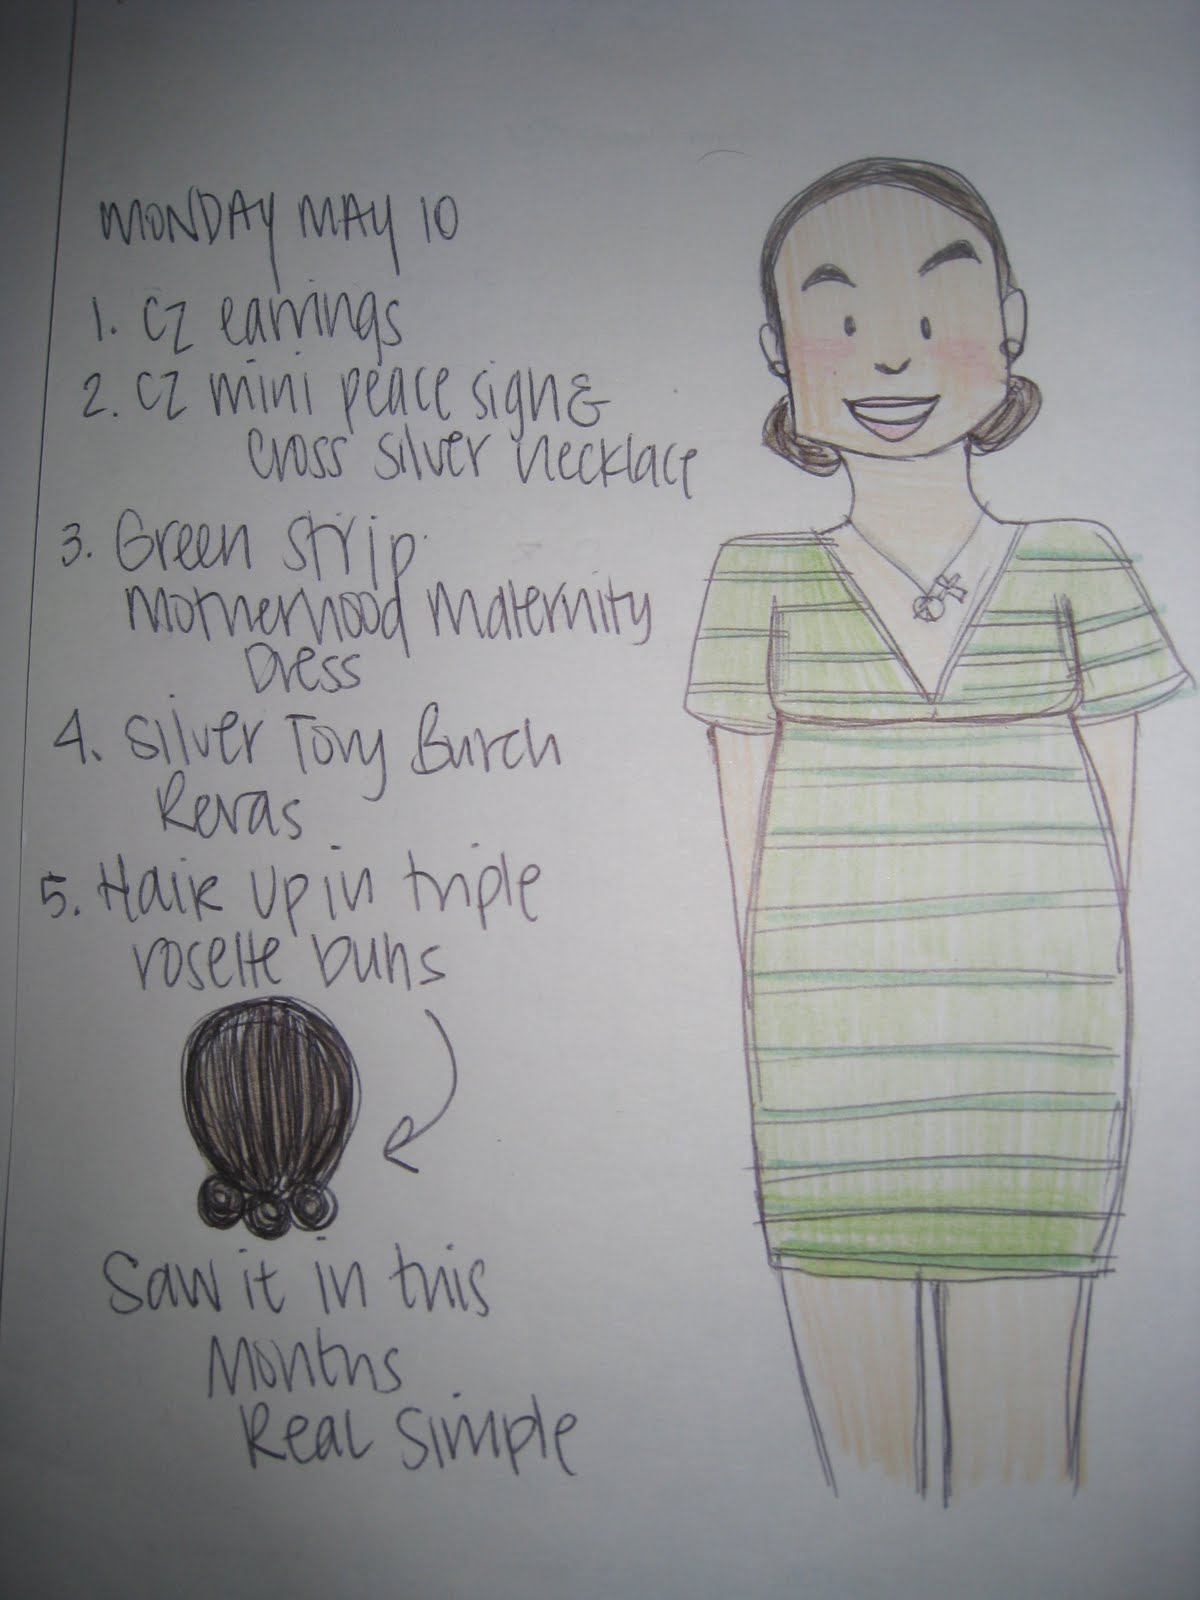 MONDAY MAY 10
1. CZ earrings
2. CZ mini peace sign &
cross silver necklace
3. Green strip
Motherhood Maternity
Dress
4. Silver Tory Burch
Revas
5. Hair up in triple
rosette buns
Saw it in this
Months
Real Simple